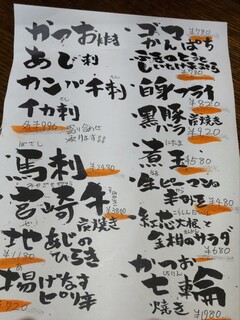 かつお
あじ刺
カンパチ刺
イカ刺
盛り合わせ
馬刺
¥1480
宮崎牛
炭焼き
地あじの
ひらき
¥1180
揚げなす
ピリ辛
ゴマ
かんぱち
¥780
白身フライ
¥820
黒豚
バラ
炭焼き
¥920
煮玉
¥580
生ピーマンの
¥480
大根と
金柑のサラダ
¥680
かつお
七輪
焼き
¥1980